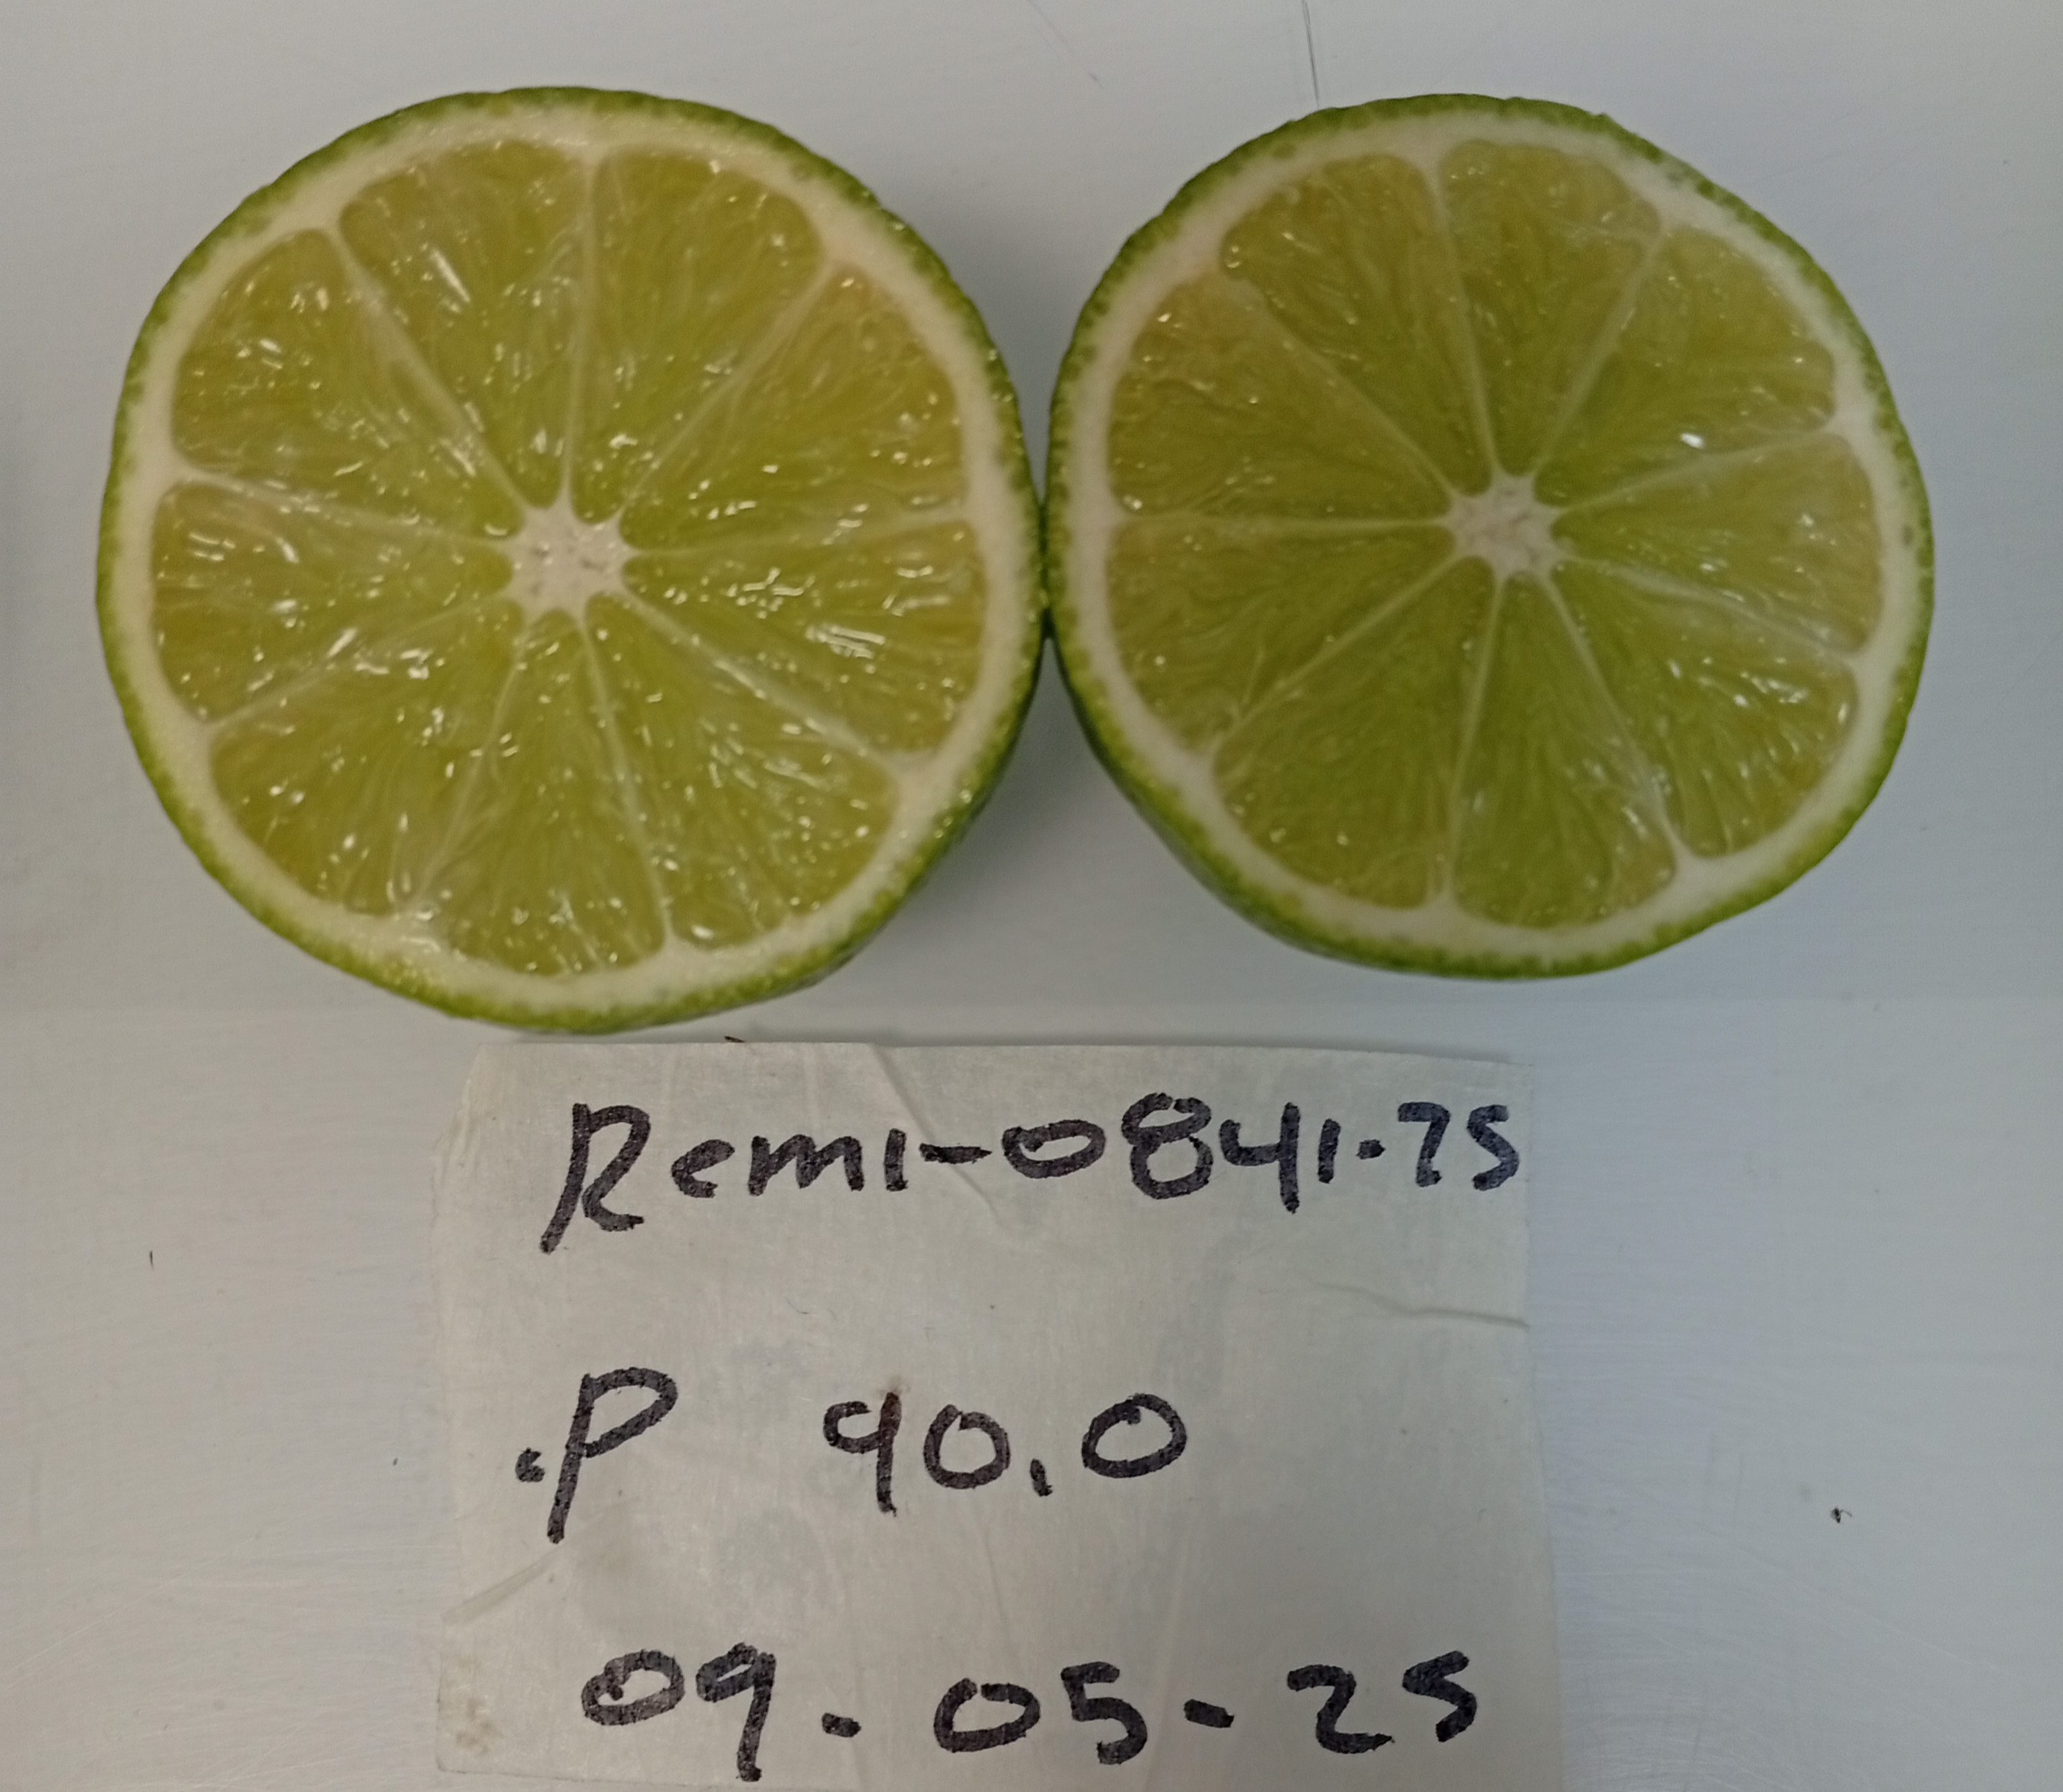 Remi-0841.25
.P 90.0
09-05-25